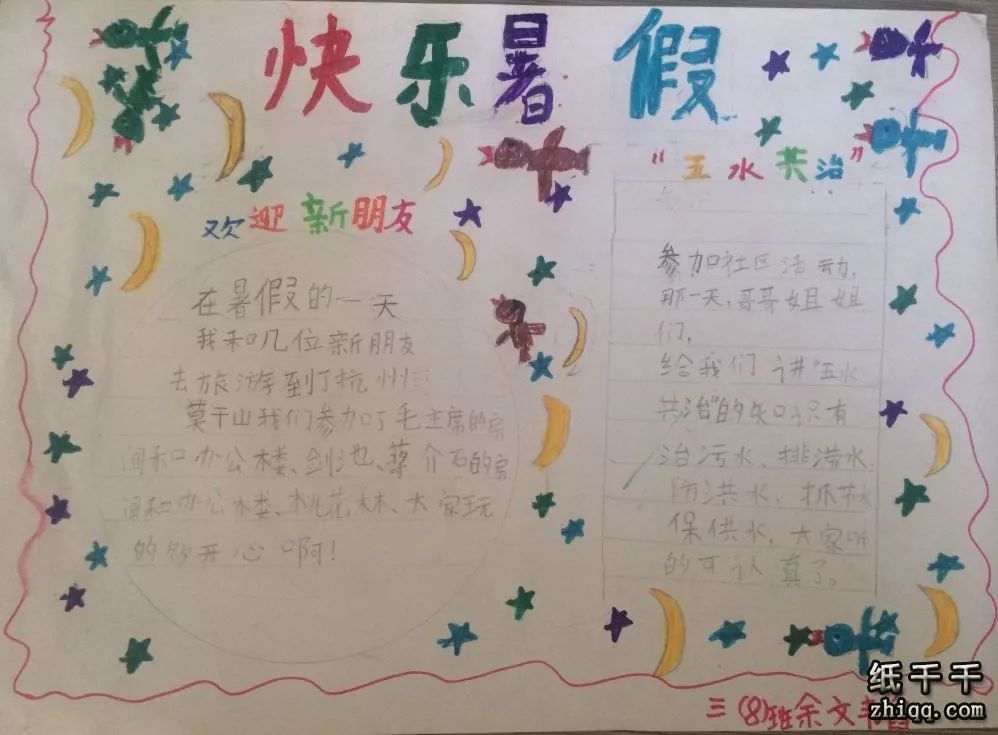 快乐暑假
欢迎新朋友
在暑假的一天
我和几位新朋友
去旅游到了杭州
莫干山我们参加了毛主席的房
间和办公楼、剑池、蒋介石的房
间和办公楼、桃花林、大家玩
的够开心啊!
"五水共治"
参加社区活动,
那一天,哥哥姐姐
们,
给我们讲"五水
共治"的知识只有
治污水、排涝水、
防洪水、抓节水
保供水,大家听
的可认真了。
三(8)班余文
纸千千
zhiqq.com